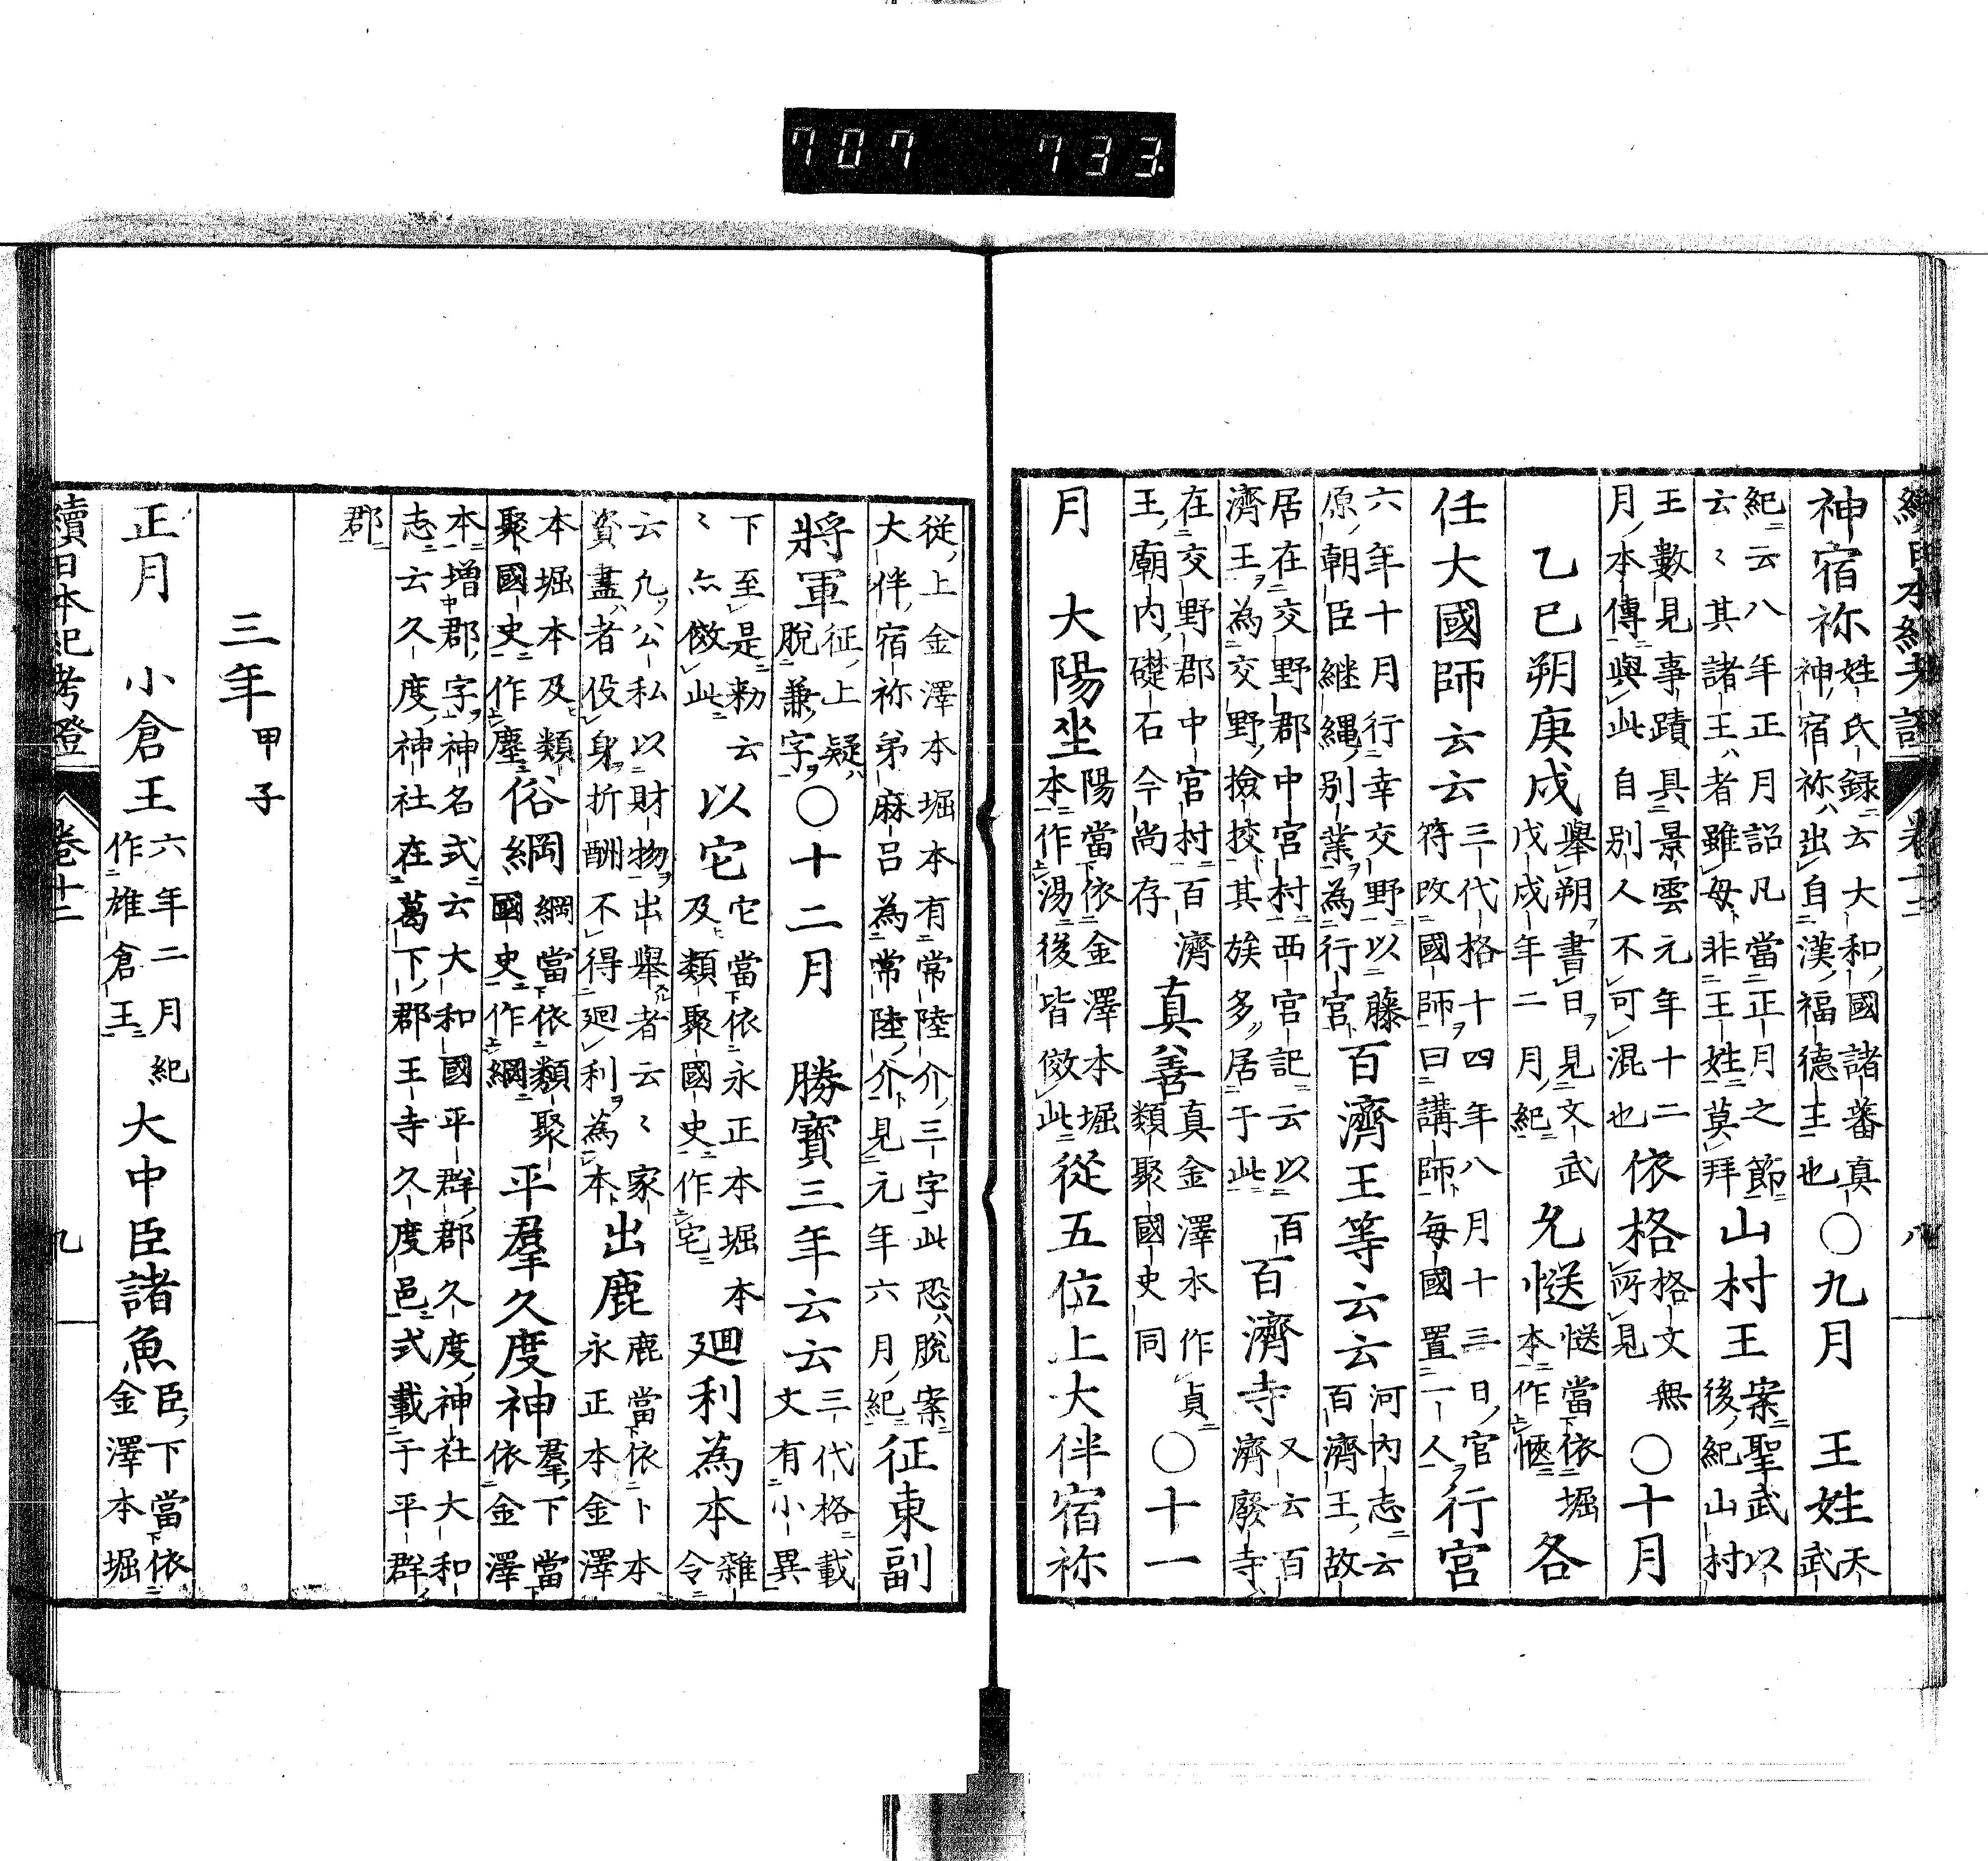 707 733
續日本紀考證 卷十二 八
神宿祢 姓氏録云大和國諸蕃真神宿祢出自漢福德王也 ○九月 王姓 天武
紀云八年正月詔凡當正月之節云〻其諸王者雖母非王姓莫拜 山村王 案聖武以後紀山村
王數見事蹟具景雲元年十二月本傳與此自別人不可混也 依格 格文無所見 ○十月
乙巳朔庚戌 舉朔書日見文武戊戌年二月紀 允㥦 㥦當依堀本作愜 各
任大國師云云 三代格十四年八月十三日官符改國師曰講師每國置一人 行宮
六年十月行幸交野以藤原朝臣継縄別業為行宮 百濟王等云云 河內志云百濟王故
居在交野郡中宮村西宮記云以百濟王為交野撿挍其族多居于此 百濟寺 又云百濟廢寺
在交野郡中宮村百濟王廟內礎石今尚存 真善 真金澤本作貞類聚國史同 ○十一
月 大陽坐 陽當依金澤本堀本作湯後皆傚此 從五位上大伴宿祢
從上金澤本堀本有常陸介三字此恐脫案大伴宿祢弟麻呂為常陸介見元年六月紀 征東副
將軍 征上疑脫兼字 ○十二月 勝寶三年云云 三代格載文有小異
下至是勅云〻亦傚此 以它 它當依永正本堀本及類聚國史作宅 廻利為本 雜令
云凡公私以財物出舉者云〻家資盡者役身折酬不得廻利為本 出鹿 鹿當依卜本永正本金澤
本堀本及類聚國史作塵 俗網 網當依類聚國史作綱 平羣久度神 羣下當依金澤
本增郡字神名式云大和國平群郡久度神社大和志云久度神社在葛下郡王寺久度邑式載于平群
郡
三年 甲子
正月 小倉王 六年二月紀作雄倉王 大中臣諸魚 臣下當依金澤本堀
續日本紀考證 卷十二 九